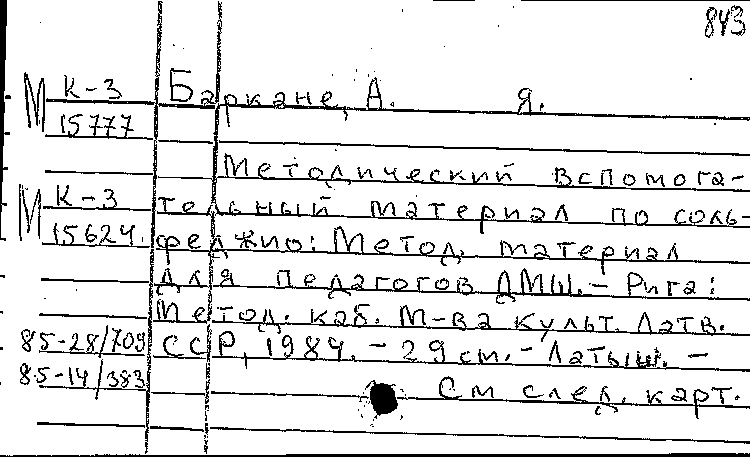 843
М К-3
15777
Баркане, А. Я.
Методический вспомога-
М К-3
15624.
тельный материал по соль-
феджио: Метод. материал
для педагогов ДМШ. - Рига:
Метод. каб. М-ва культ. Латв.
ССР, 1984. - 29 см. - Латыш. -
85-28/709
85-14/383
См след. карт.